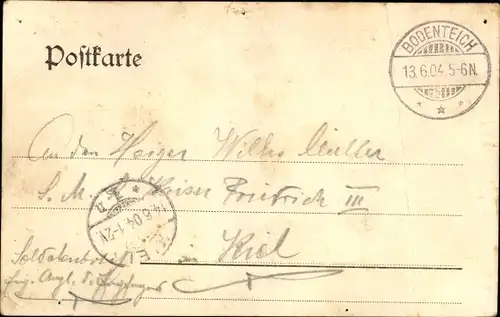 Postkarte
BODENTEICH
13.6.04 5-6N.
An den Heizer Wilh. Müller
S. M. S. Kaiser Friedrich III
14.6.04. 1-2N
in Kiel
Soldatenbrief
Eig. Angl. d. Empfängers